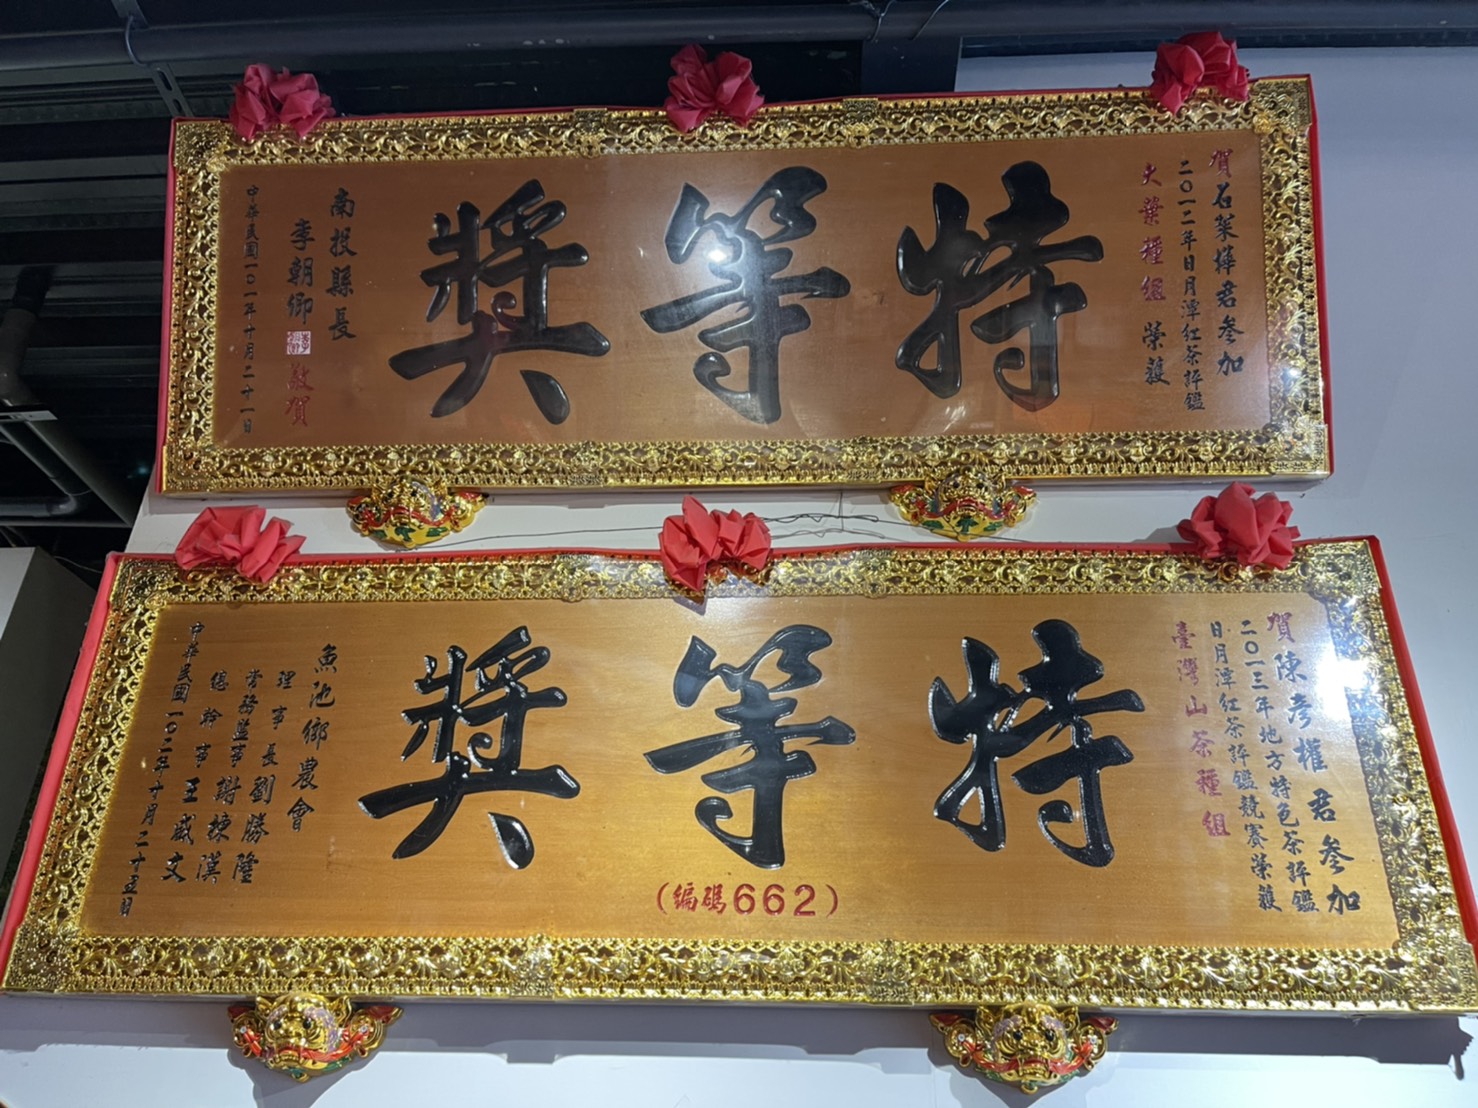 賀石茱樺君參加
二〇一二年日月潭紅茶評鑑
大葉種組 榮獲
特等獎
南投縣長
李朝卿 敬賀
中華民國一〇一年十月二十一日
賀陳彥權君參加
二〇一三年地方特色茶評鑑
日月潭紅茶評鑑競賽榮獲
臺灣山茶種組
特等獎
(編碼662)
魚池鄉農會
理事長劉勝隆
常務監事謝棟漢
總幹事王威文
中華民國一〇二年十月二十五日